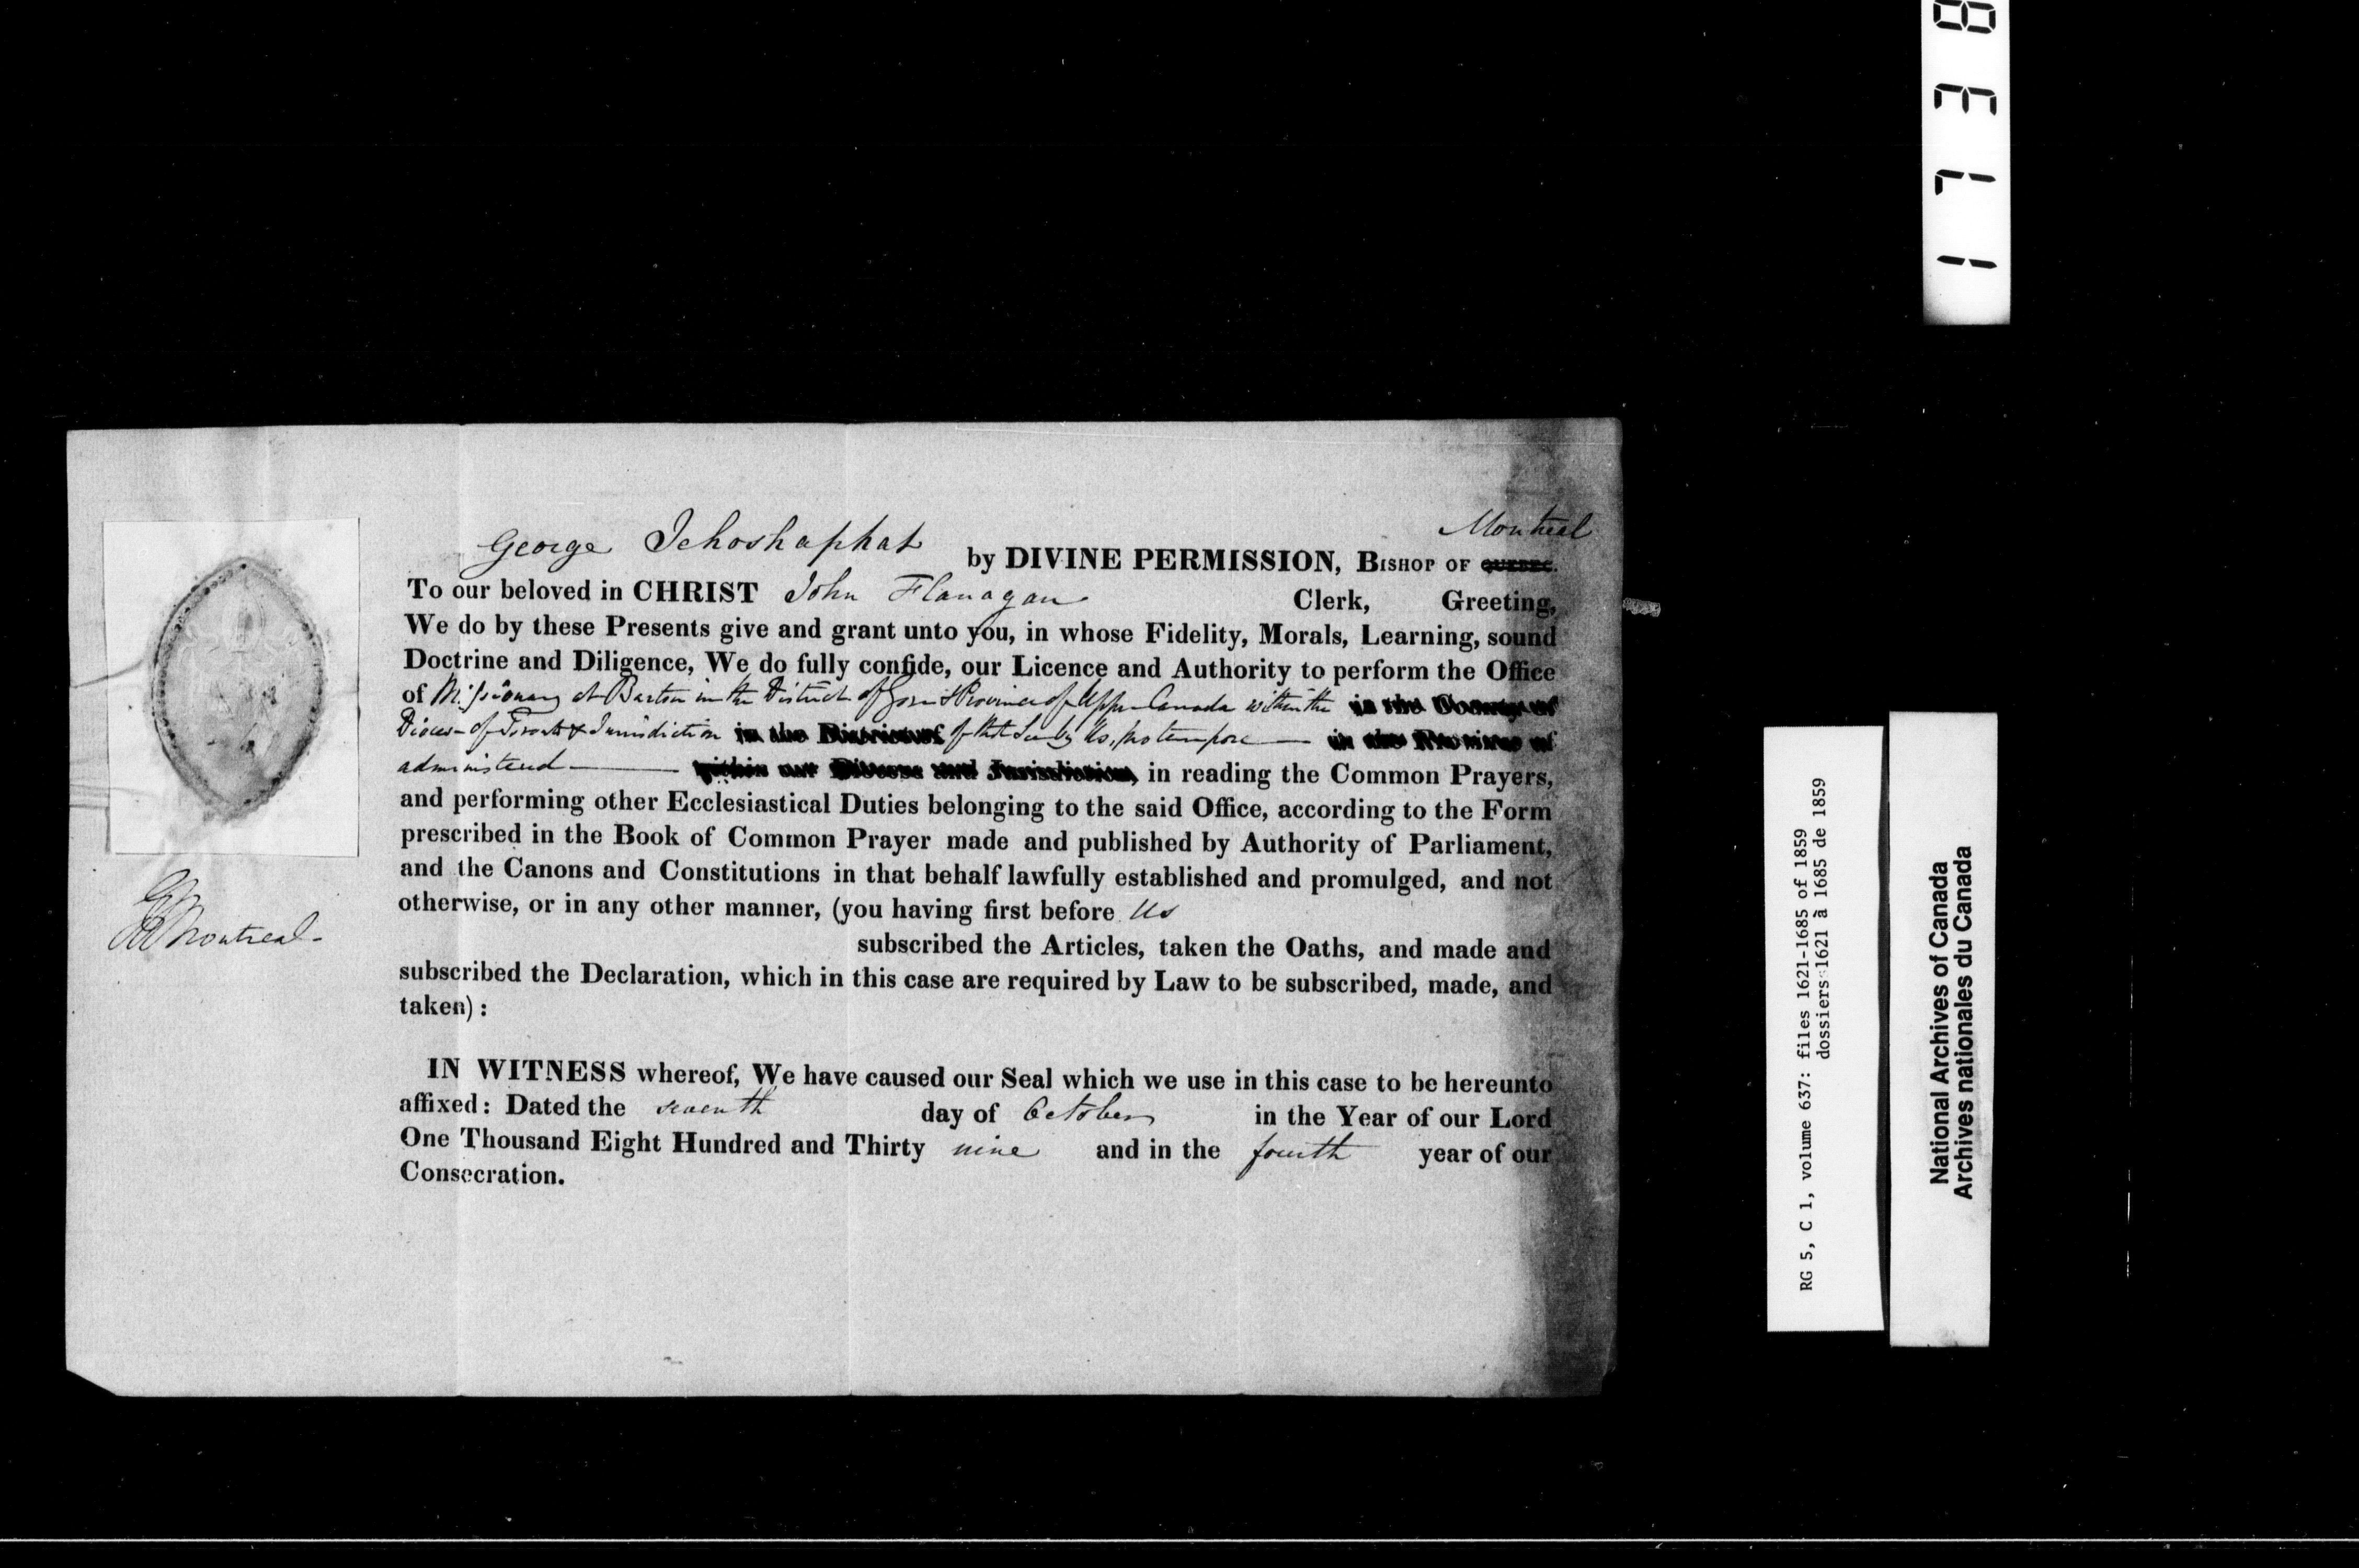 George Jehoshaphat by DIVINE PERMISSION, BISHOP OF QUEBEC. Montreal
To our beloved in CHRIST John Flanagan Clerk, Greeting,
We do by these Presents give and grant unto you, in whose Fidelity, Morals, Learning, sound
Doctrine and Diligence, We do fully confide, our Licence and Authority to perform the Office
of Missionary at Barton in the District of Gore & Province of Upper Canada within the in the County of
Diocese of Toronto & Jurisdiction in the District of of that See by Us, pro tempore in the Province of
administered within our Diocese and Jurisdiction, in reading the Common Prayers,
and performing other Ecclesiastical Duties belonging to the said Office, according to the Form
prescribed in the Book of Common Prayer made and published by Authority of Parliament,
and the Canons and Constitutions in that behalf lawfully established and promulged, and not
otherwise, or in any other manner, (you having first before Us
subscribed the Articles, taken the Oaths, and made and
subscribed the Declaration, which in this case are required by Law to be subscribed, made, and
taken) :
IN WITNESS whereof, We have caused our Seal which we use in this case to be hereunto
affixed : Dated the seventh day of October in the Year of our Lord
One Thousand Eight Hundred and Thirty nine and in the fourth year of our
Consecration.
G J Montreal
1738
RG 5, C 1, volume 637: files 1621-1685 of 1859
dossiers 1621 à 1685 de 1859
National Archives of Canada
Archives nationales du Canada